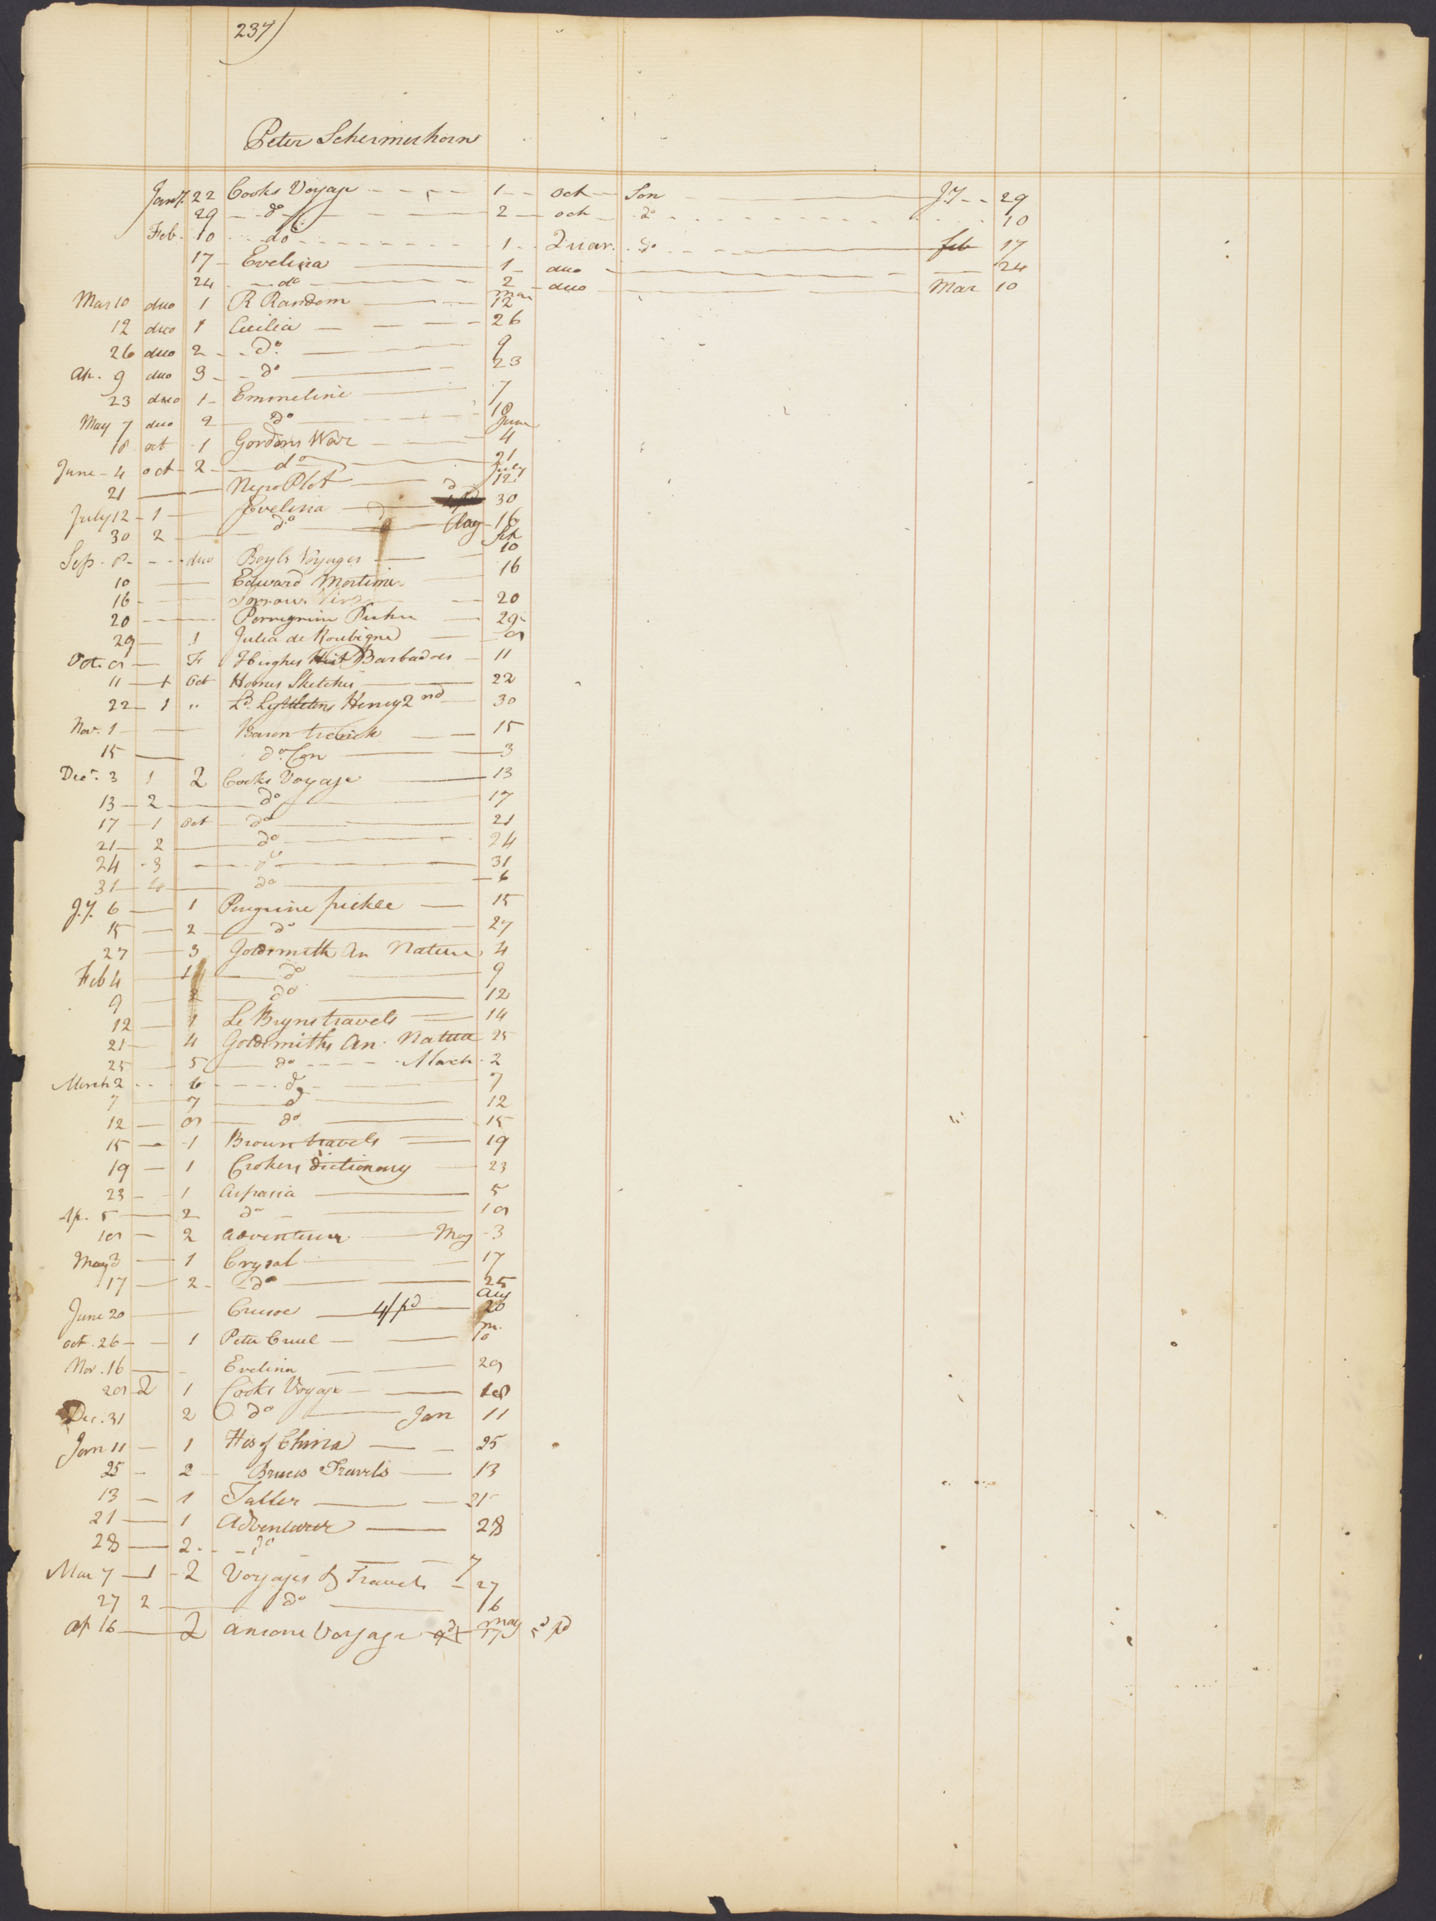 237)
Peter Schermerhorn
Jany. 22 Cooks Voyage 1 oct Son Jy 29
29 do 2 oct do 10
Feb. 10 do 1 2 uar. do feb 17
17 Evelina 1 duo 24
24 do 2 duo Mar 10
Mar 10 duo 1 R Random Mar 12
12 duo 1 Cecilia 26
26 duo 2 do 9
Ap. 9 duo 3 do 23
23 duo 1 Emmeline 7
May 7 duo 2 do 18
18 oct 1 Gordons War June 4
June 4 oct 2 do 21
21 Negro Plot July 12
July 12 1 Evelina 30
30 2 do Aug 16
Sep. 8 duo Boyls Voyages Sep 10
10 Edward Mortimer 16
16 20
20 Perregrine Pickle 29
29 1 Julia de Roubigne 8
Oct. 8 F Hughes Hist Barbadoes 11
11 1 Oct Homes Sketches 22
22 1 " Ld. Lyttletons Henry 2nd 30
Nov. 1 Baron trenck 15
15 do. Con 3
Decr. 3 1 2 Cooks Voyage 13
13 2 do 17
17 1 Oct do 21
21 2 do 24
24 3 do 31
31 4 do 6
J.y. 6 1 Peregrine pickle 15
15 2 do 27
27 3 Goldsmith An Nature 4
Feb 4 1 do 9
9 2 do 12
12 1 Le Bryns travels 14
21 4 Goldsmiths An. Nature 25
25 5 do March 2
March 2 6 do 7
7 7 do 12
12 8 do 15
15 1 Brown travels 19
19 1 Crokers dictionary 23
23 1 Aspasia 5
Ap. 5 2 do 18
18 2 Adventurer May 3
May 3 1 Crysal 17
17 2 do 25
June 20 Crusoe 4/pd Aug 20
Oct. 26 1 Peter 10
Nov. 16 Evelina 28
28 2 1 Cooks Voyage 18
Dec. 31 2 do Jan 11
Jan 11 1 His of China 25
25 2 Bruces Travels 13
13 1 Tatler 21
21 1 Adventurer 28
28 2 do 7
Mar 7 1 2 Voyages & Travels 27
27 2 do 16
Ap 16 2 Ansons Voyage May 17 5d pd